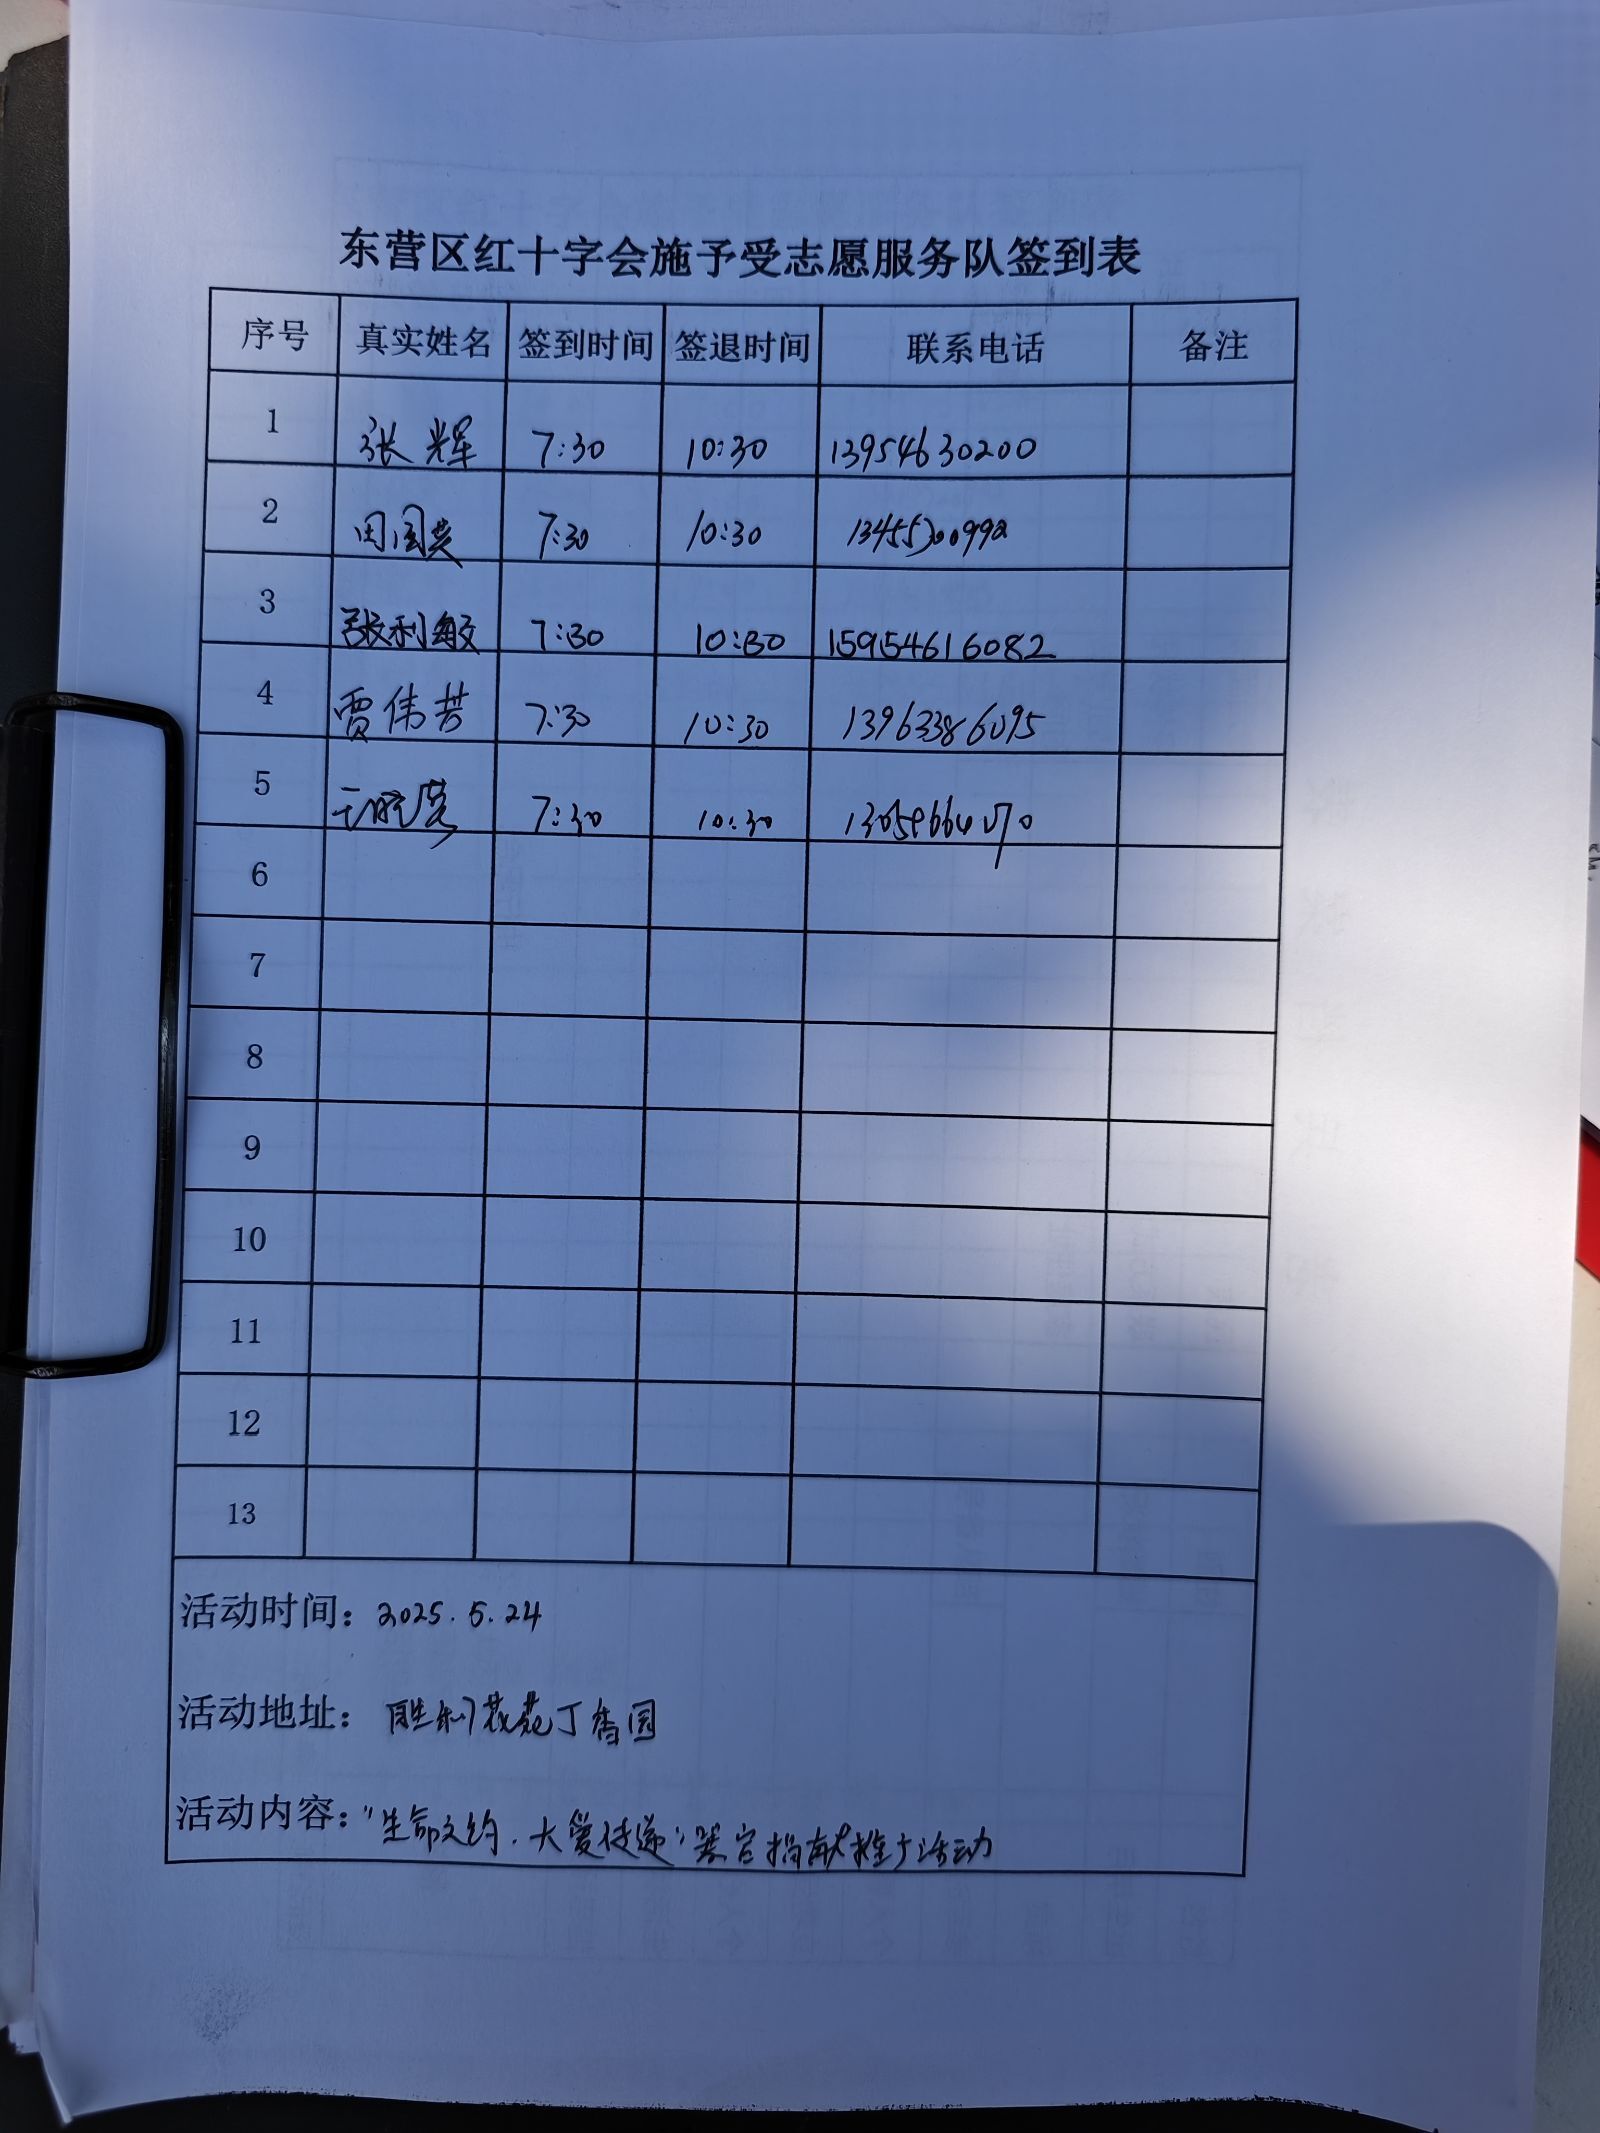 东营区红十字会施予受志愿服务队签到表
序号 真实姓名 签到时间 签退时间 联系电话 备注
1 张辉 7:30 10:30 13954630200
2 田国英 7:30 10:30 13455300992
3 张利敏 7:30 10:30 15954616082
4 贾伟芳 7:30 10:30 13963386095
5 7:30 10:30
6
7
8
9
10
11
12
13
活动时间：2025.5.24
活动地址：胜利花苑丁香园
活动内容："生命之约．大爱传递"器官捐献推广活动